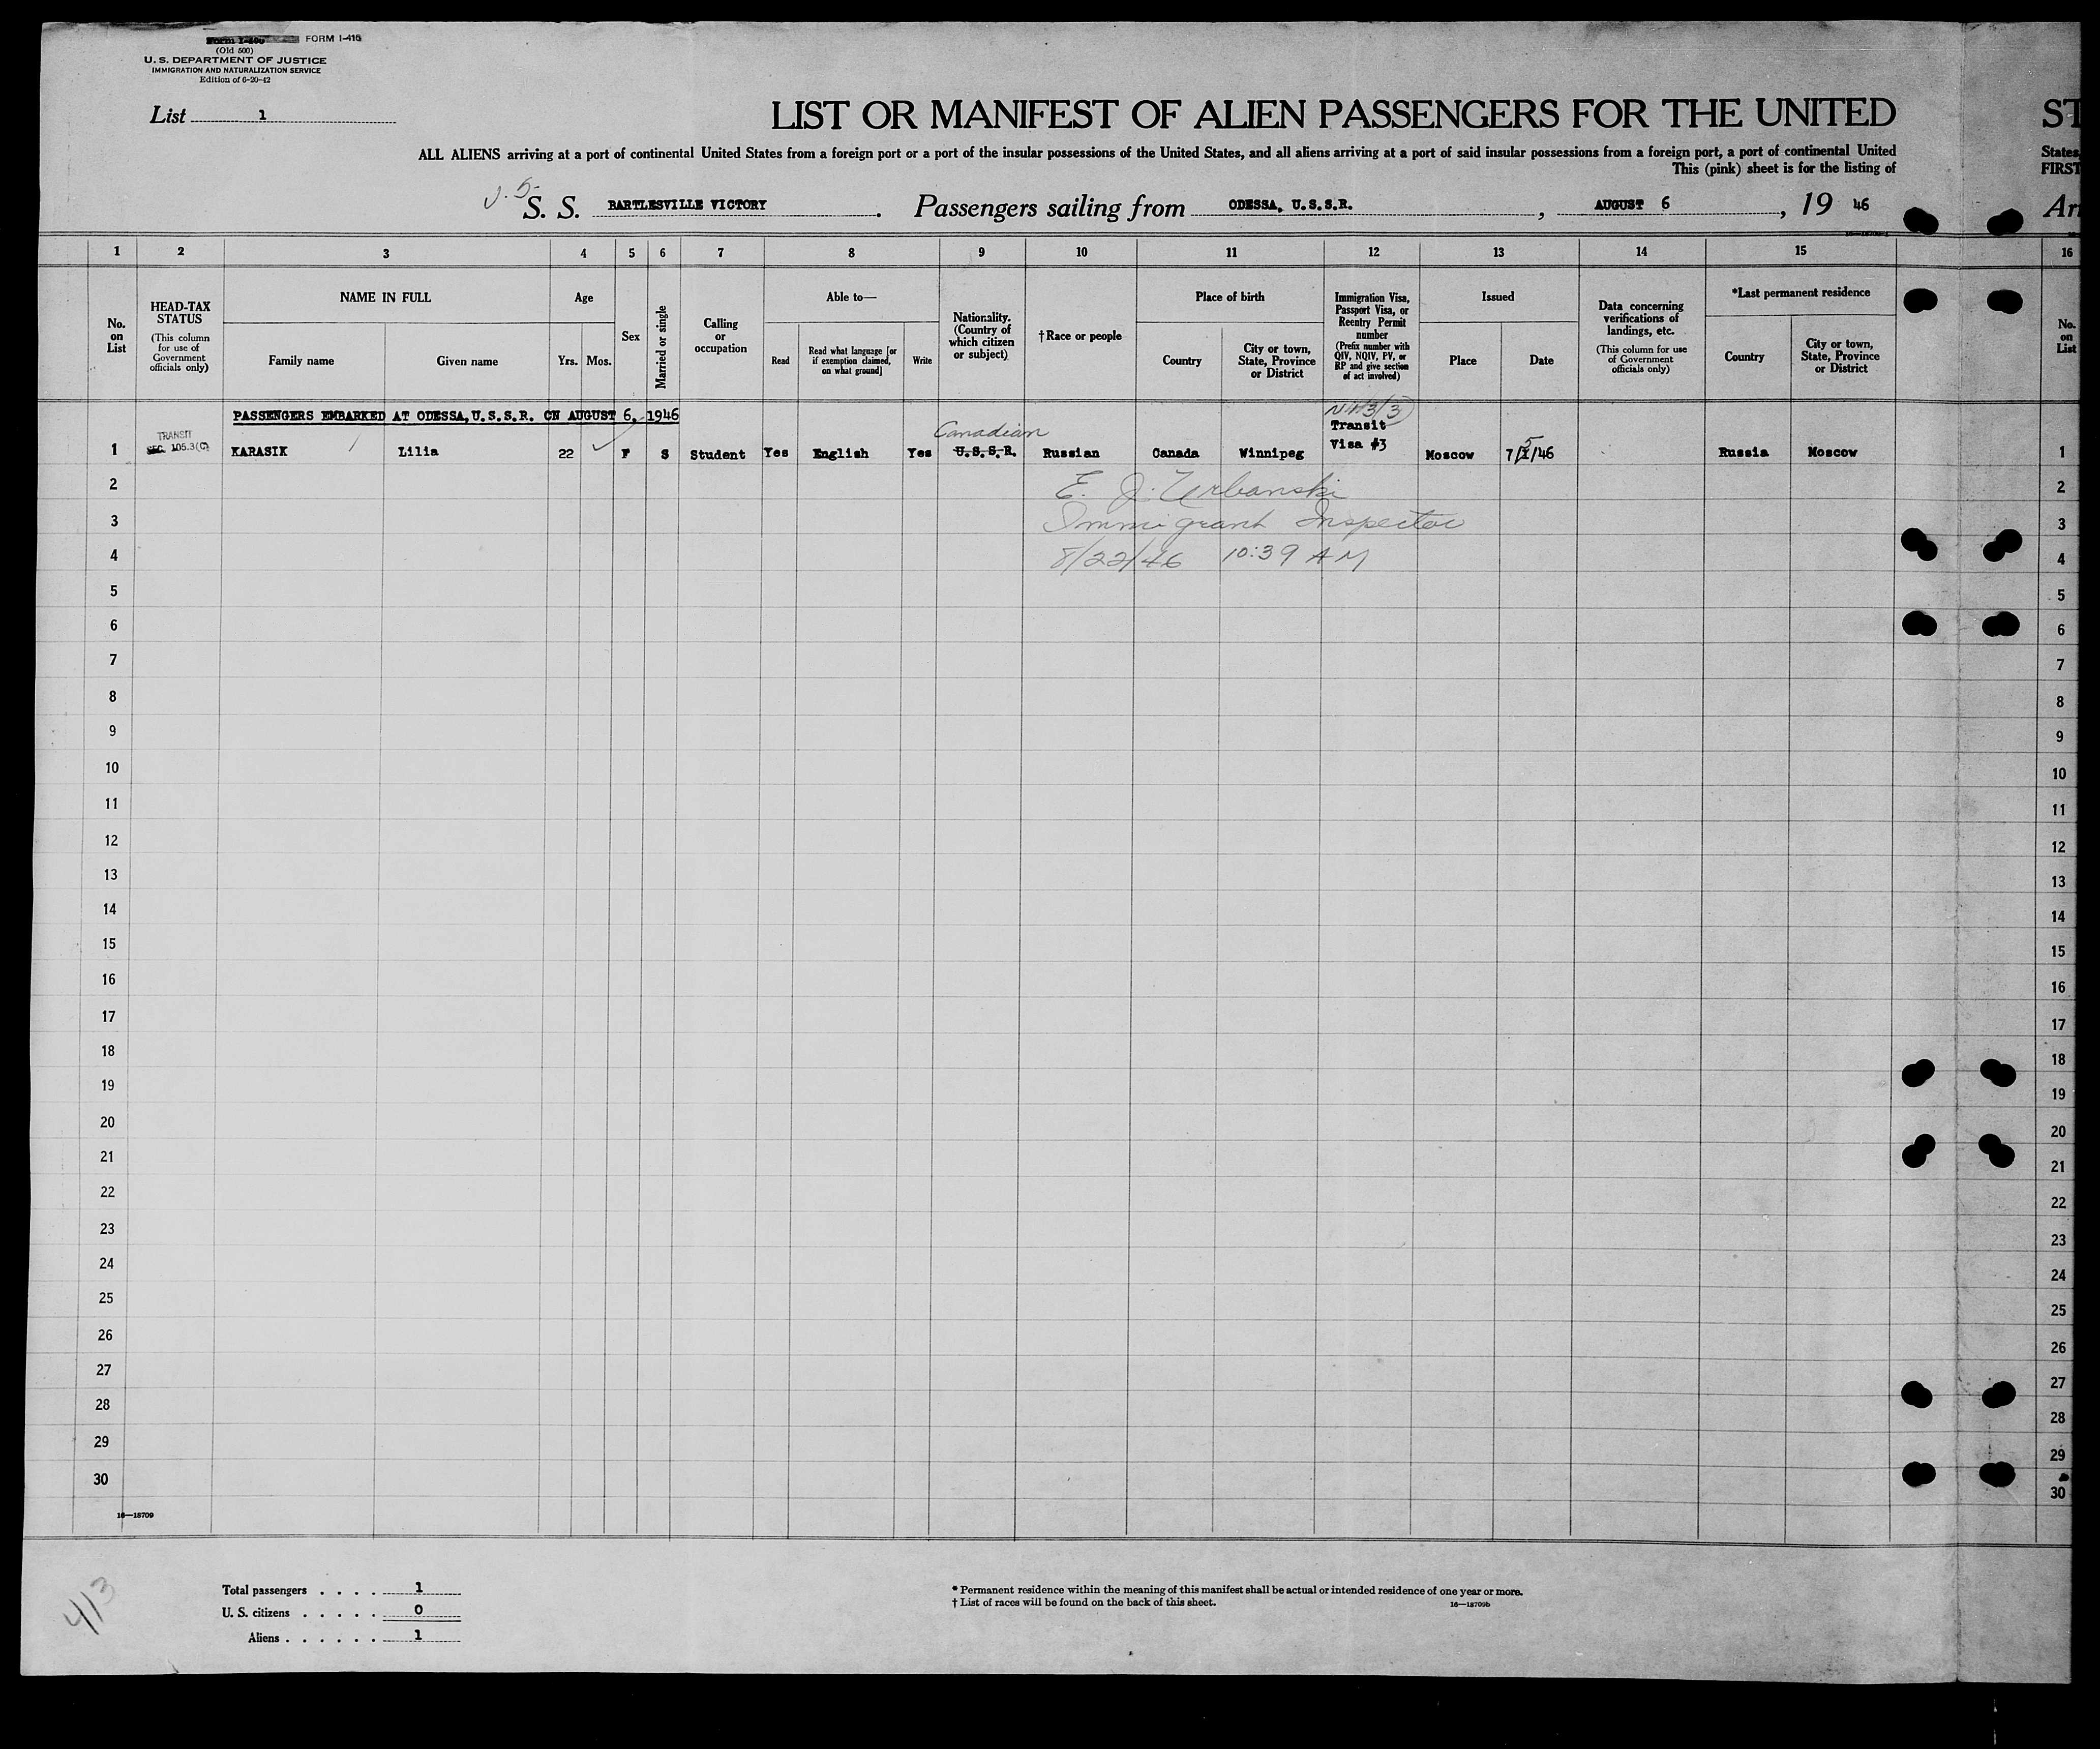 Form I-400 FORM I-416
(Old 500)
U. S. DEPARTMENT OF JUSTICE
IMMIGRATION AND NATURALIZATION SERVICE
Edition of 6-20-42
List 1
LIST OR MANIFEST OF ALIEN PASSENGERS FOR THE UNITED ST
ALL ALIENS arriving at a port of continental United States from a foreign port or a port of the insular possessions of the United States, and all aliens arriving at a port of said insular possessions from a foreign port, a port of continental United States,
This (pink) sheet is for the listing of FIRST
S. S. BARTLESVILLE VICTORY. Passengers sailing from ODESSA, U.S.S.R., AUGUST 6, 19 46 Arr
1 2 3 4 5 6 7 8 9 10 11 12 13 14 15 16
No. on List
HEAD-TAX STATUS
(This column for use of Government officials only)
NAME IN FULL
Family name
Given name
Age
Yrs. Mos.
Sex
Married or single
Calling or occupation
Able to—
Read
Read what language [or if exemption claimed, on what ground]
Write
Nationality. (Country of which citizen or subject)
†Race or people
Place of birth
Country
City or town, State, Province or District
Immigration Visa, Passport Visa, or Reentry Permit number
(Prefix number with QIV, NQIV, PV, or RP and give section of act involved)
Issued
Place
Date
Data concerning verifications of landings, etc.
(This column for use of Government officials only)
*Last permanent residence
Country
City or town, State, Province or District
No. on List
PASSENGERS EMBARKED AT ODESSA, U.S.S.R. ON AUGUST 6, 1946
TRANSIT
SEC. 105.3(C)
Canadian
Transit
Visa #3
1 KARASIK Lilia 22 F S Student Yes English Yes U.S.S.R. Russian Canada Winnipeg Moscow 7/5/46 Russia Moscow 1
2 E. J. Urbanski 2
3 Immigrant Inspector 3
4 8/22/46 10:39 AM 4
5 5
6 6
7 7
8 8
9 9
10 10
11 11
12 12
13 13
14 14
15 15
16 16
17 17
18 18
19 19
20 20
21 21
22 22
23 23
24 24
25 25
26 26
27 27
28 28
29 29
30 30
16—18709
413
Total passengers . . . . 1
U. S. citizens . . . . . 0
Aliens . . . . . . 1
* Permanent residence within the meaning of this manifest shall be actual or intended residence of one year or more.
† List of races will be found on the back of this sheet. 16—18709b